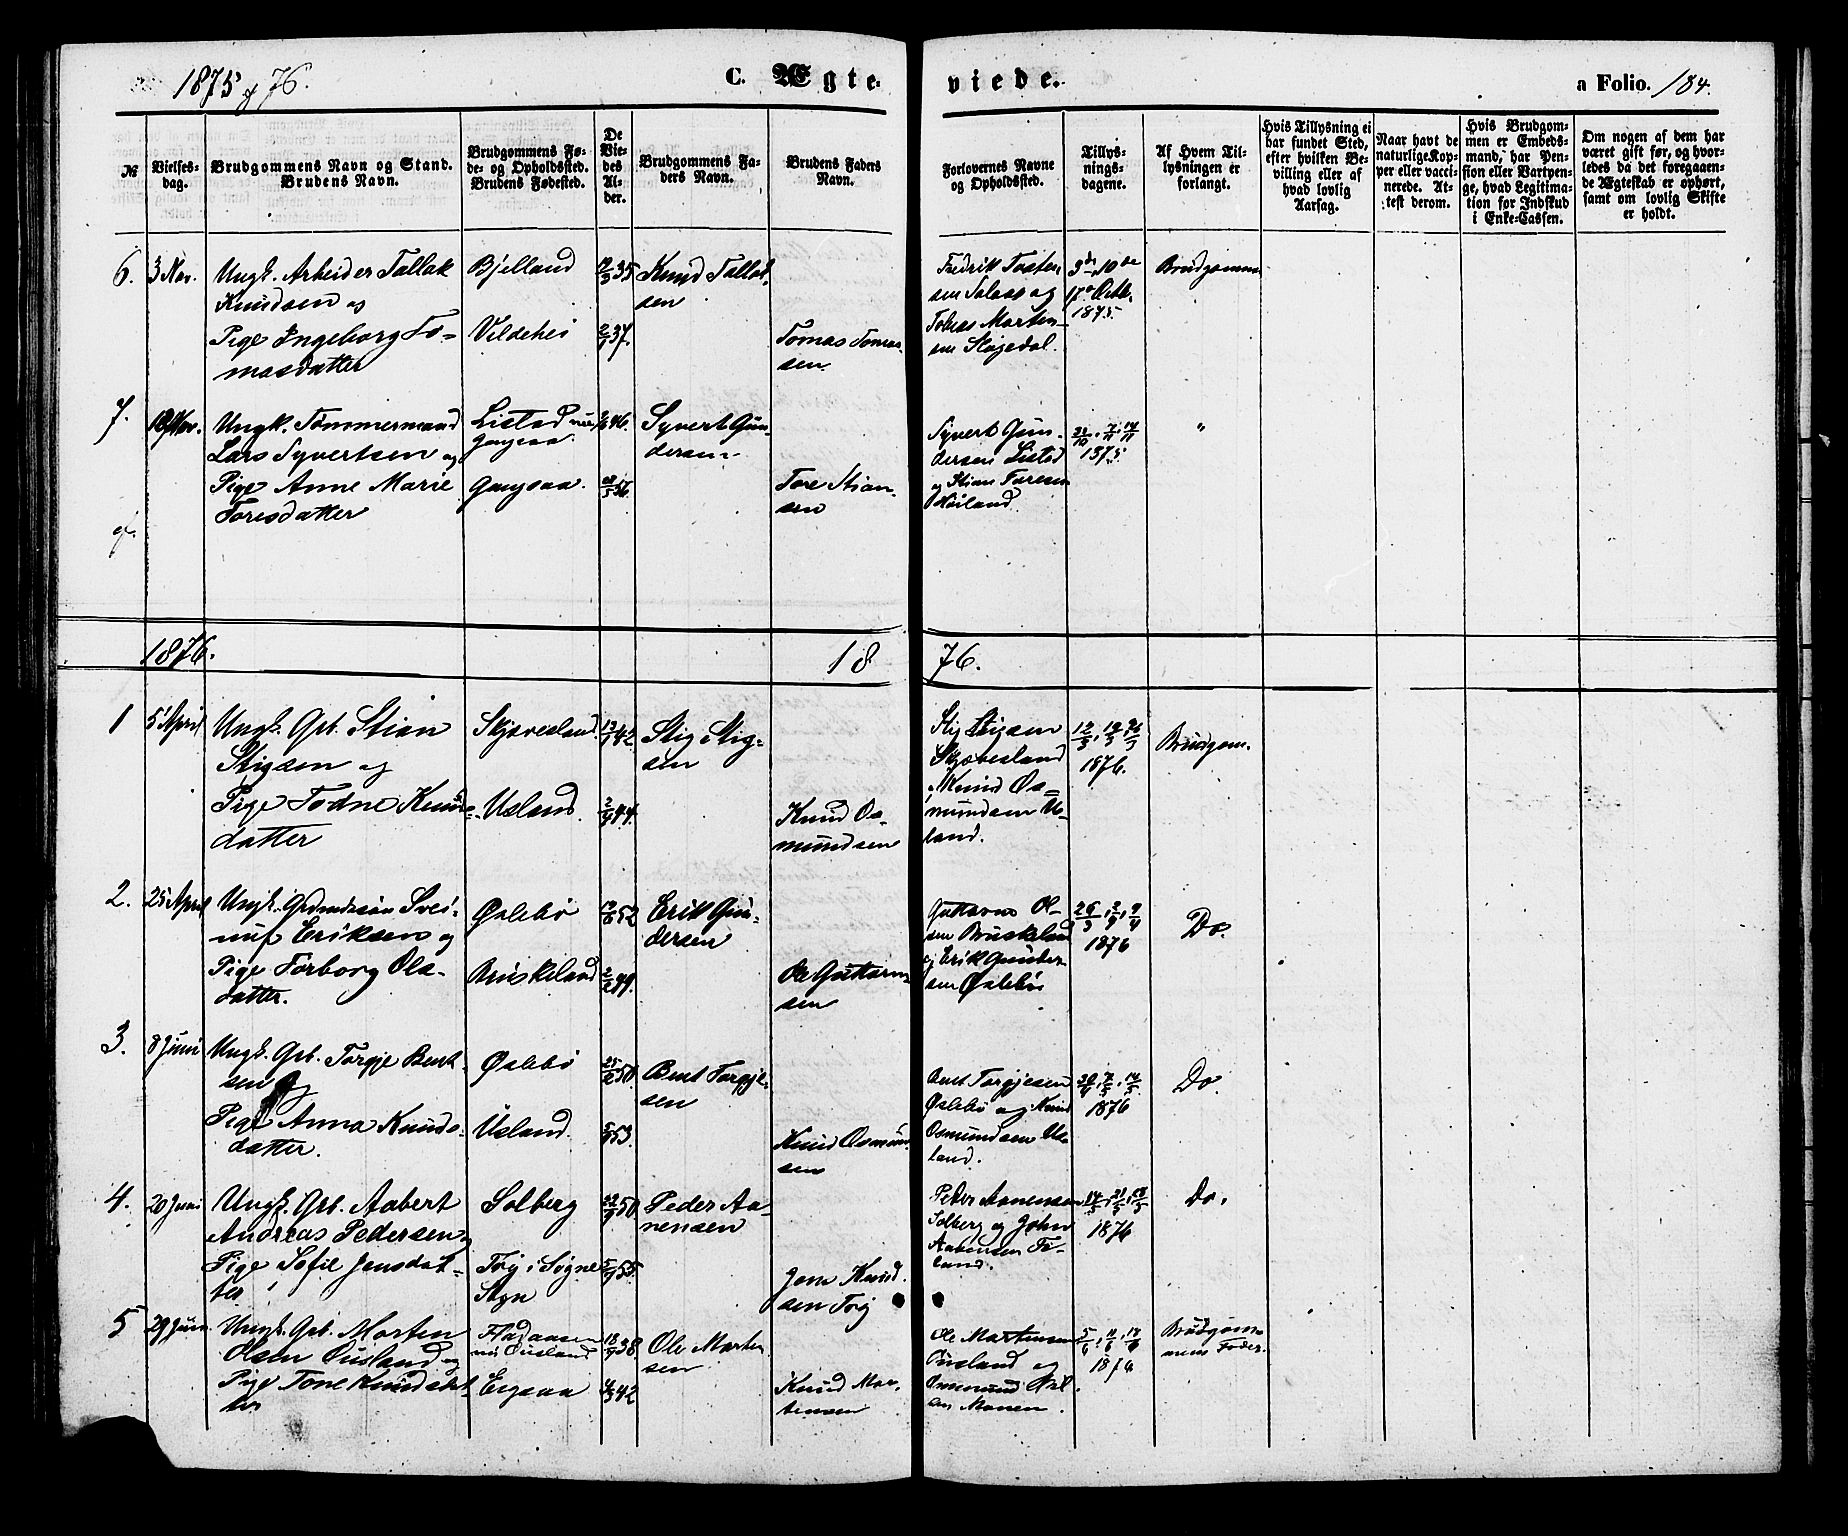 1875 & 76.
C. Ægte- viede.
a Folio. 184.
№
Vielses-
dag.
Brudgommens Navn og Stand.
Brudens Navn.
Brudgommens Fø-
de- og Opholdssted.
Brudens Fødested.
De
Vie-
des
Al-
der.
Brudgommens Fa-
ders Navn.
Brudens Faders
Navn.
Forlovernes Navne
og Opholdssted.
Tillys-
nings-
dagene.
Af Hvem Til-
lysningen er
forlangt.
Hvis Tillysning ei
har fundet Sted,
efter hvilken Be-
villing eller af
hvad lovlig
Aarsag.
Naar havt de
naturlige Kop-
per eller vacci-
nerede. At-
test derom.
Hvis Brudgom-
men er Embeds-
mand, har Pen-
sion eller Vartpen-
ge, hvad Legitima-
tion for Indskud
i Enke-Cassen.
Om nogen af dem har
været gift før, og hvor-
ledes da det foregaaen-
de Ægteskab er ophørt,
samt om lovlig Skifte
er holdt.
6. 3 Nov. Ungk. Arbeider Tallak
Knudsen og
Pige Ingeborg To-
masdatter
Bjelland
Vildehei
35
2/9 37.
Knud Tallak-
sen
Tomas Tomas-
sen.
Fredrik Tosten-
sen Solaas og
Tobias Morten-
sen Skogedal.
3de, 10de
17de Octb.
1875.
Brudgommen
7. Nov. Ungk. Tømmermand
Lars Syvertsen og
Pige Anne Marie
Toresdatter
Listad nu
Gangsaa
Gangsaa.
46.
56.
Syvert Gun-
dersen
Tore Stian-
sen
Syvert Gun-
dersen Listad
og Stian Toresen
Høiland
31/10, 7/11, 14/11
1875.
"
1876. 18 76.
1 5 April Ungk. Grb. Stian
Stigsen og
Pige Todne Knuds-
datter
Skjævesland.
Usland.
42.
2/9 44.
Stig Stig-
sen
Knud Os-
mundsen
Stig Stigsen
Skjævesland
Knud Os-
mundsen Us-
land.
12/3, 19/3, 26/3
1876.
Brudgom.
2. 25 April Ungk. Grdmdssøn Svei-
nuf Eriksen og
Pige Torborg Ols-
datter.
Øslebø
Bruskeland
52
2/2 49.
Erik Gun-
dersen
Ole Guttorm-
sen
Guttorm Ol-
sen Bruskeland
og Erik Gunder-
sen Øslebø
26/3, 2/4, 9/4
1876
Do.
3. 8 Juni Ungk. Grb. Torgje Bent-
sen og
Pige Anna Knuds-
datter.
Øslebø
Usland.
25/2 50.
53.
Bent Torgje-
sen
Knud Osmund-
sen
Bent Torgjesen
Øslebø og Knud
Osmundsen Us-
land.
30/4, 7/5, 14/5
1876
Do
4. 20 Juni Ungk. Grb. Aabert
Andreas Pedersen og
Pige Sofie Jensdat-
ter
Solberg
Trøj i Søgne
Sogn
50.
55.
Peder Aa-
nensen
Jens Knud-
sen Trøj
Peder Aanensen
Solberg og John
land.
14/5, 21/5, 28/5
1876
Do.
5 29 Juni Ungk. Grb. Morten
Olsen Ousland og
Pige Tone Knudsdat-
ter
nu Ousland
Eegsaa
18/9 38.
4/3 42
Ole Morten-
sen
Knud Mor-
tensen
Ole Mortensen
Ousland og
Osmund
Monen.
5/6, 11/6, 18/6
1876
Brudgom-
mens Fader.